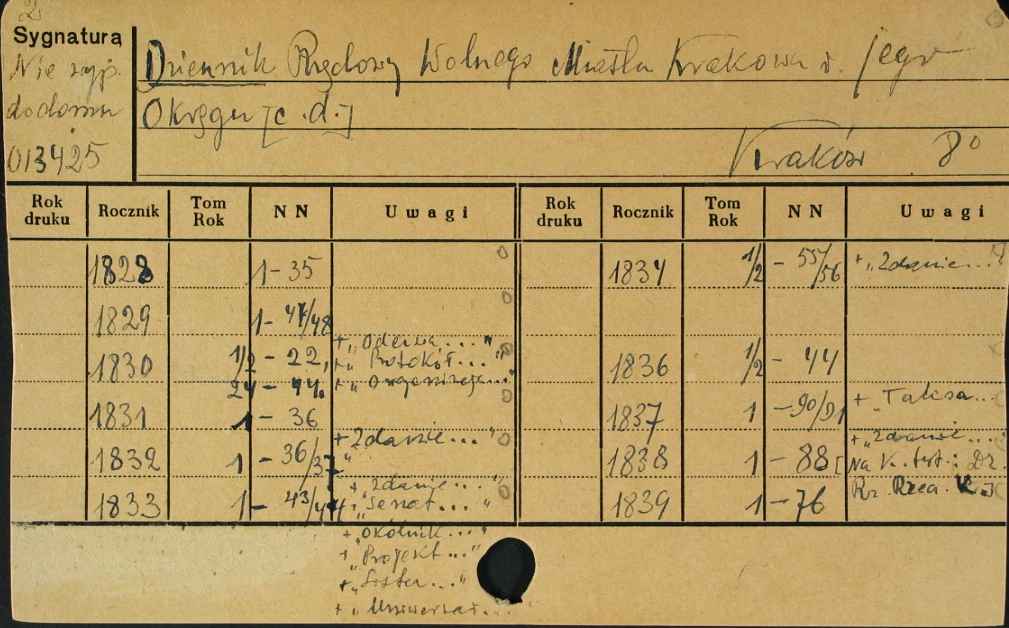 2.
Sygnatura
Nie wyp.
do domu
013425
Dziennik Rządowy Wolnego Miasta Krakowa i jego
Okręgu [c.d.]
Kraków 8°
Rok druku Rocznik Tom Rok NN Uwagi Rok druku Rocznik Tom Rok NN Uwagi
1828 1-35
1834 1/2 - 55/56 + „Zdanie...
1829 1- 47/48
+ „Odezwa..."
1830 1/2 - 22, + „Protokół..."
24 - 44. + „Organizacja..."
1836 1/2 - 44
1831 1 - 36
1837 1 - 90/91 + „Taksa...
+ Zdanie..."
1832 1 - 36/37
+ „Zdanie..."
1838 1 - 88 [Na k. tyt.: Dz.
Rz. Rzea. K.]
+ „Zdanie...
1833 1 - 43/44 + „Senat..."
1839 1 - 76
+ „Okólnik..."
+ „Projekt..."
+ „Lista..."
+ „Uniwersał...